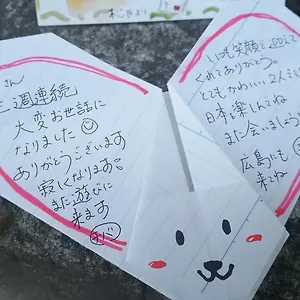 さん
三週連続
大変お世話に
なりました
ありがとうございます
寂しくなりますが
また遊びに
来ます
いつも笑顔で迎えて
くれてありがとう。
とてもかわいい2人で
日本を楽しんでね
また会いましょう
広島にも
来てね